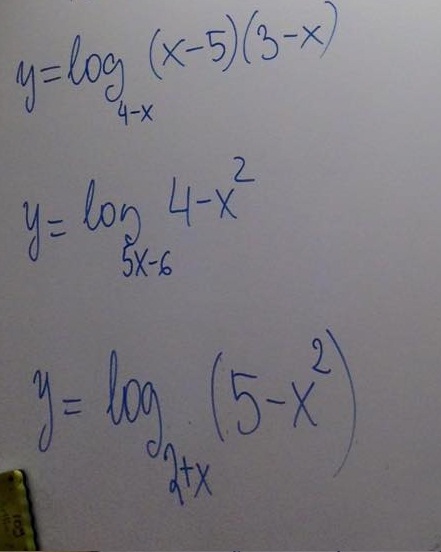 y=log₄₋ₓ (x-5)(3-x)
y= log₅ₓ₋₆ 4-x²
y= log₂₊ₓ (5-x²)